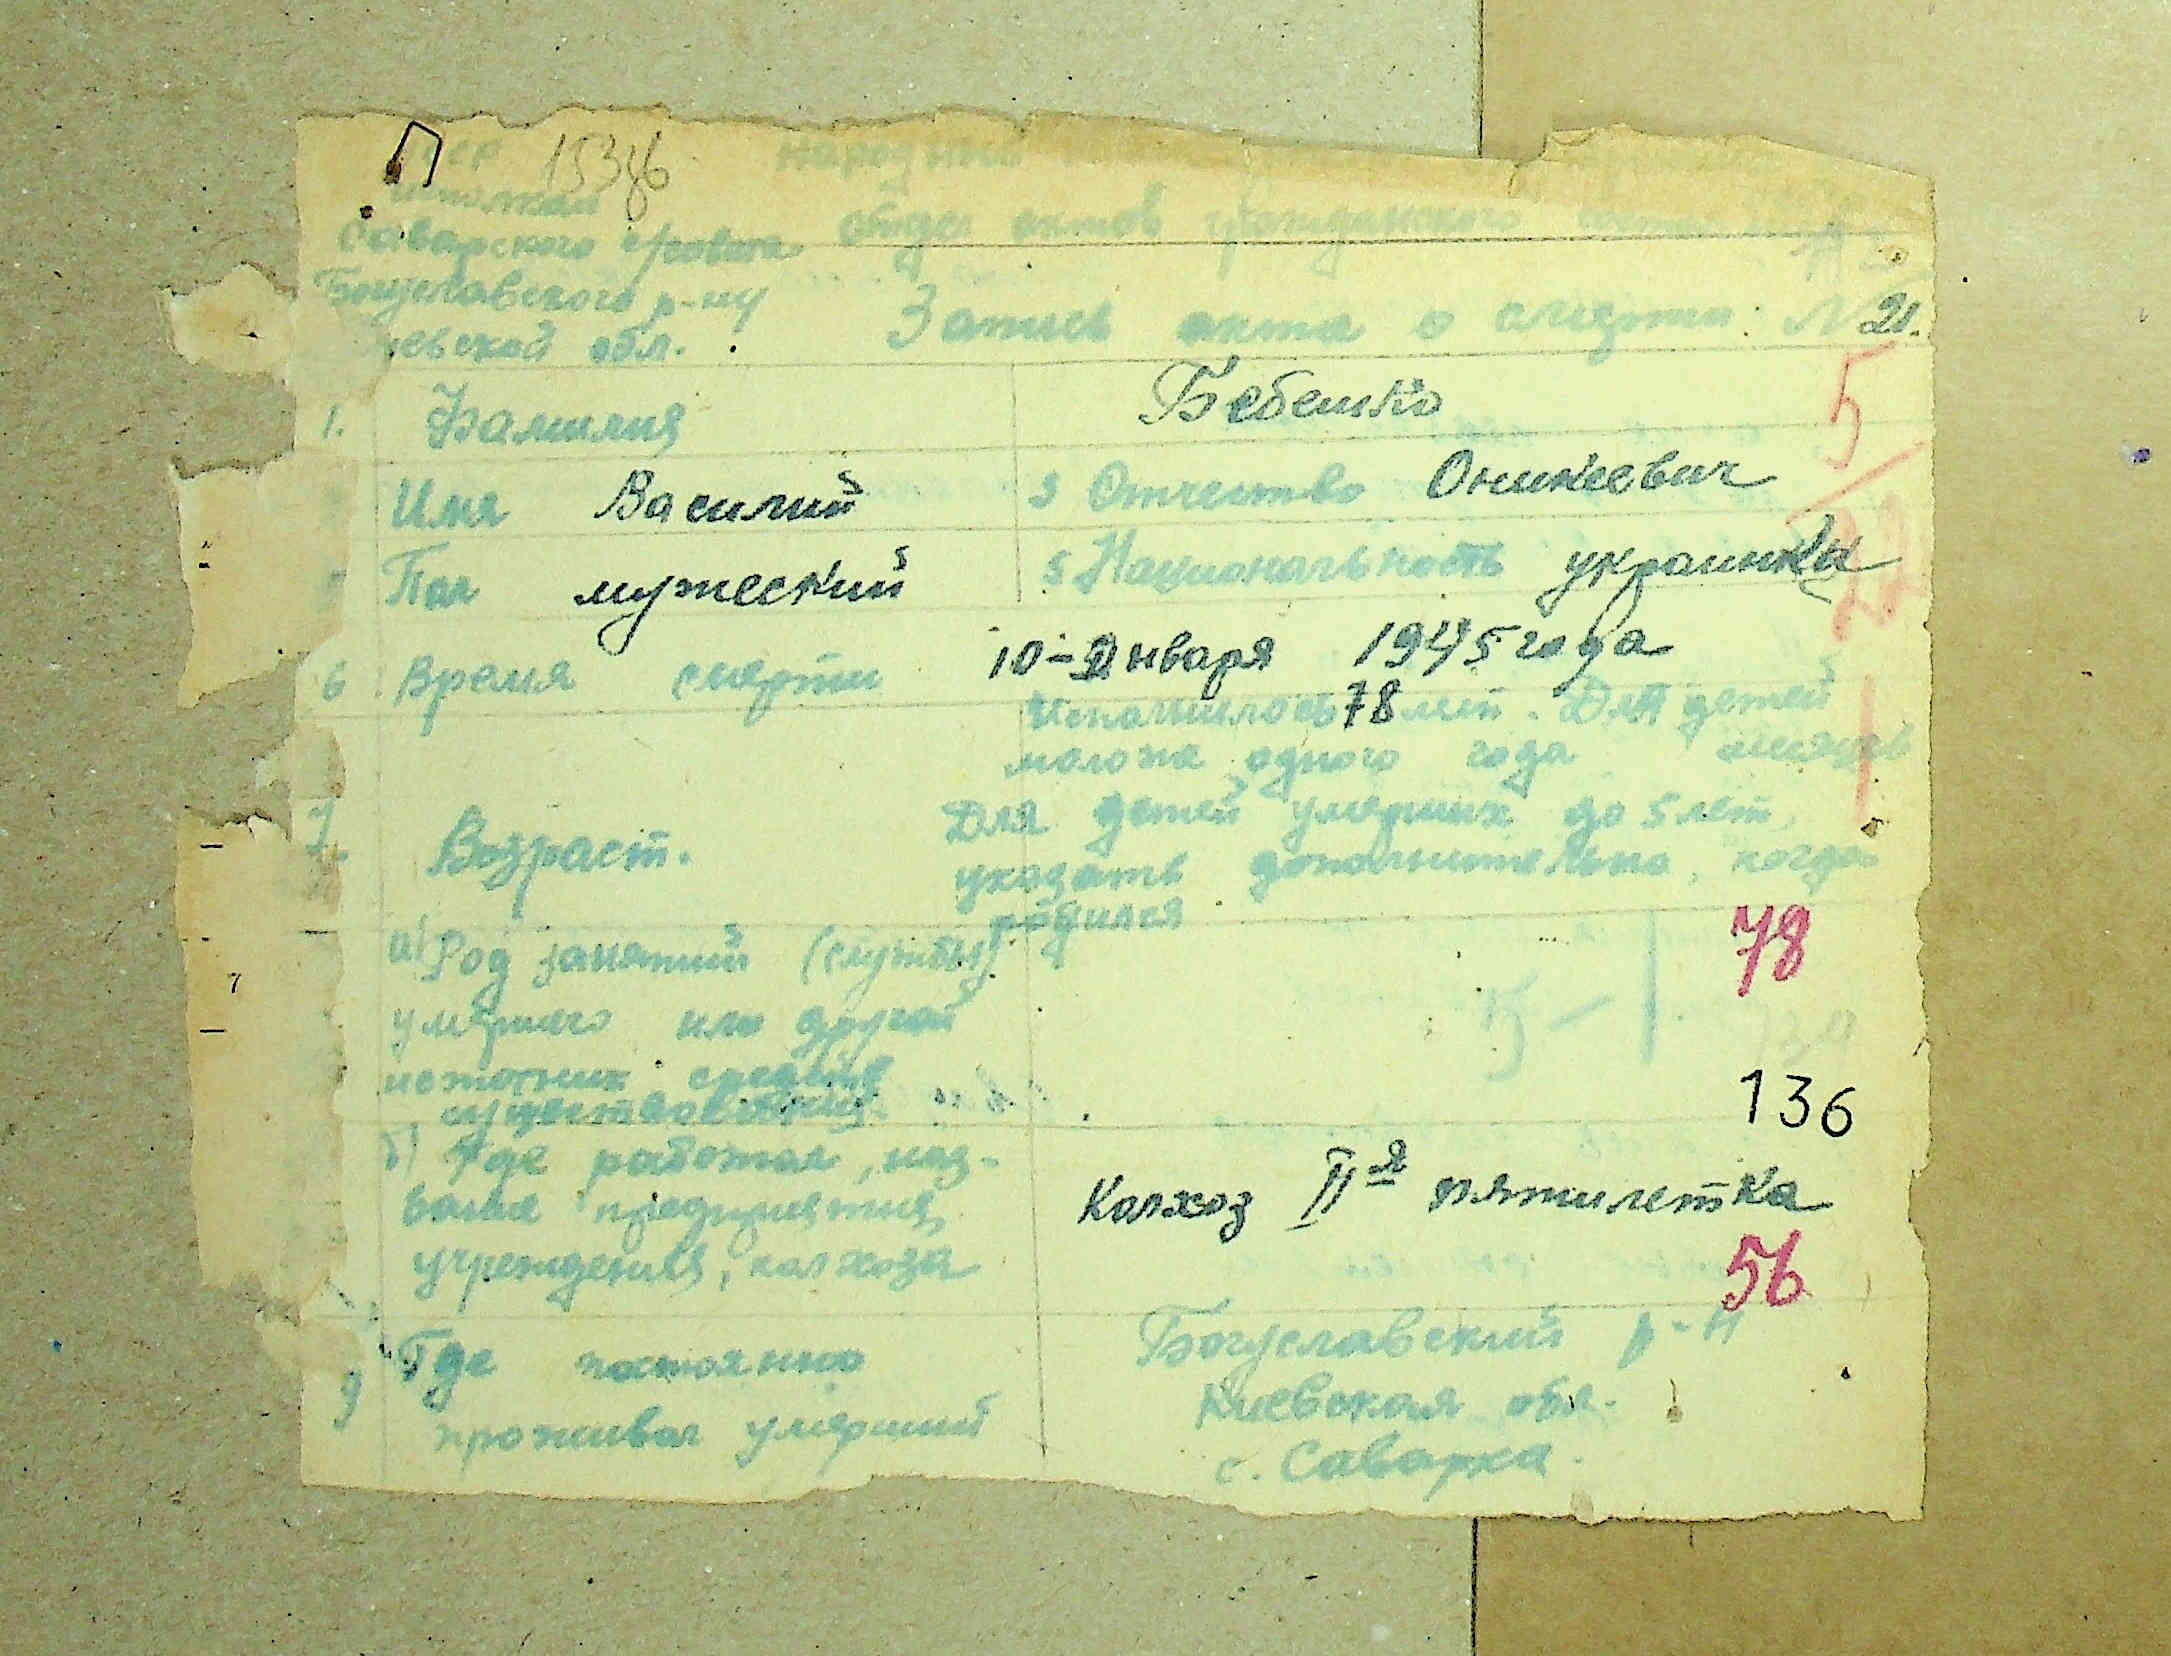 15376
Исполком
Саварского с/совета отдел актов гражданского
Богуславского р-ну
Киевской обл. Запись акта о смерти № 21.
1. Фамилия Бебешко
Имя Василий 3 Отчество Оникеевич
Пол мужеский 5 Национальность украинка
6 Время смерти 10-Января 1945 года
Исполнилось 78 лет. Для детей
моложе одного года месяцев
7. Возраст. Для детей умерших до 5 лет
указать дополнительно, когда
родился
5
22
1
78
а) Род занятий (службы)
умершего или другой
источник средств
существования.
5-1
136
б) Где работал, наз-
вание предприятия,
учреждения, колхоза
Колхоз II-я пятилетка
56
9 Где постоянно
проживал умерший
Богуславский р-н
Киевская обл.
с. Саварка.
7